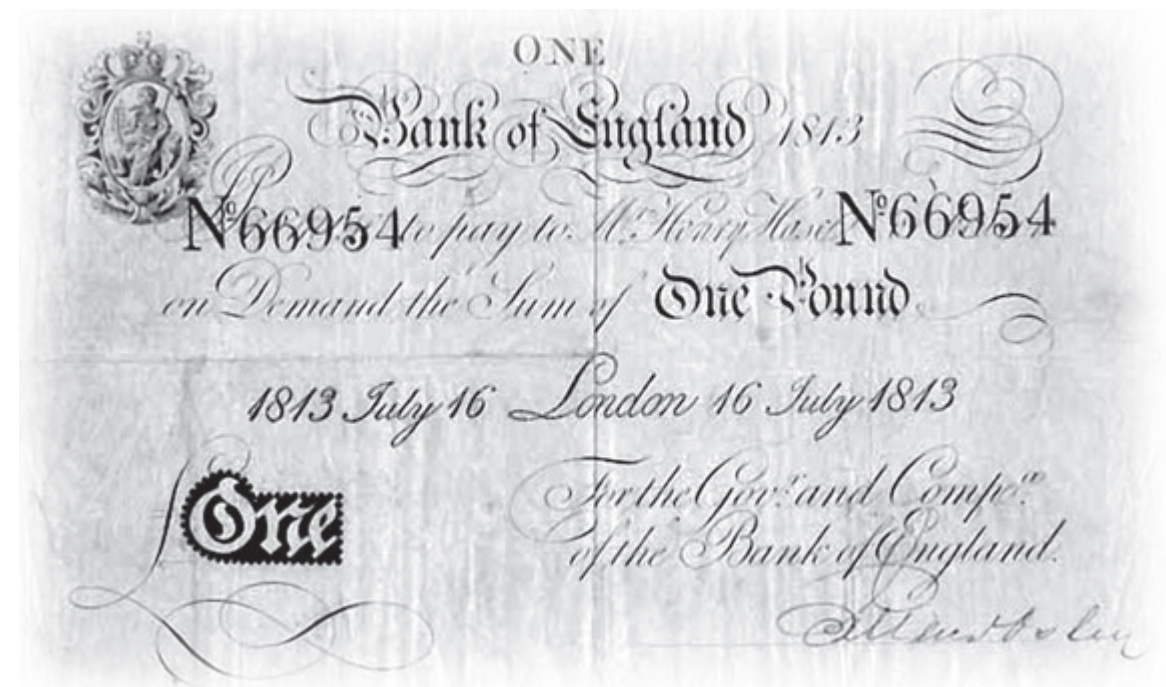 ONE
Bank of England 1813
Nº66954 to pay to Mr. Henry Hase Nº66954
on Demand the Sum of One Pound
1813 July 16 London 16 July 1813
£ One
For the Govr. and Compa.
of the Bank of England.